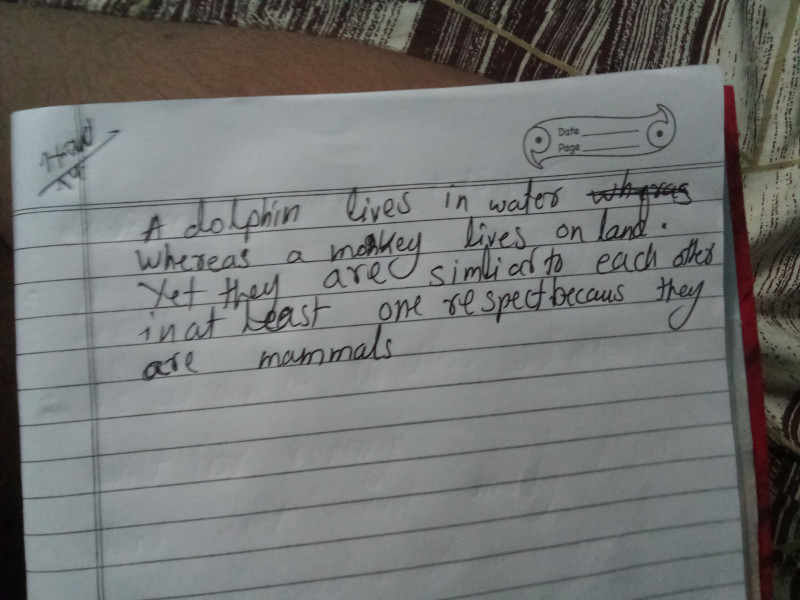 Date
Page
A dolphin lives in water whgras
whereas a monkey lives on land.
Yet they are simliar to each other
in at least one respect becaus they
are mammals